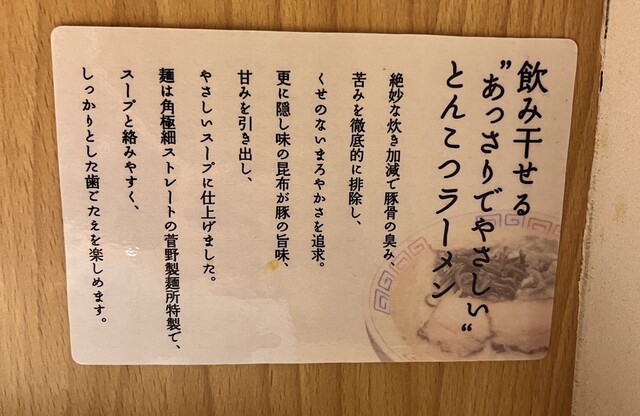 飲み干せる
"あっさりでやさしい"
とんこつラーメン
絶妙な炊き加減で豚骨の臭み、
苦みを徹底的に排除し、
くせのないまろやかさを追求。
更に隠し味の昆布が豚の旨味、
甘みを引き出し、
やさしいスープに仕上げました。
麺は角極細ストレートの菅野製麺所特製で、
スープと絡みやすく、
しっかりとした歯ごたえを楽しめます。